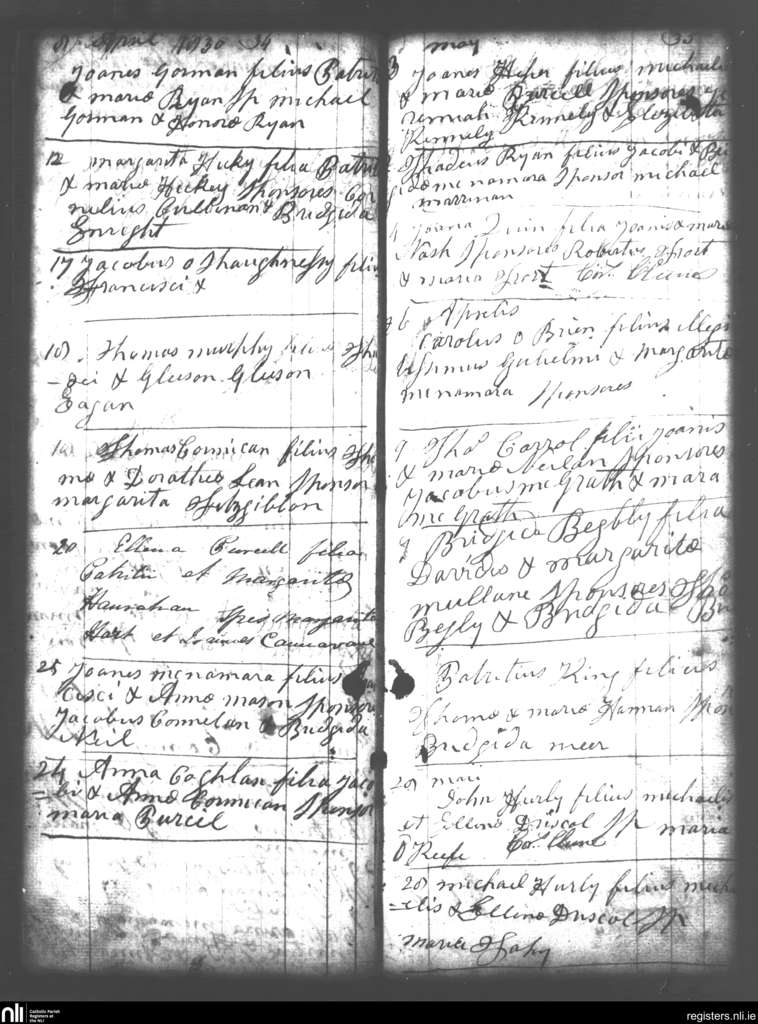 April 1830 34
Joanes Gorman filius Patri
& mariæ Ryan Sp michael
Gorman & Honoræ Ryan
12 margarita Hicky filia Patri
& mariæ Heckey Sponsores Cor
nelius Cullinan & Bridgida
Enright
17 Jacobus o Shaughnessy filiu
Francisci &
18 Thomas murphy filius Tha
dei & Gleeson Gleeson
Eagan
Thomas Cormican filius Tho
mæ & Dorathea Lean Sponsor
margarita Fitzgibbon
20 Ellena Purcell filia
Patritii et Margaritæ
Hanrahan Spes margarita
Hart et Joannes Cannavane
25 Joanes mcnamara filius
cisci & Annæ mason Sponsores
Jacobus Connelan & Bridgida
Neil
24 Anna Coghlan filia Jaco
bi & Annæ Cormican Sponsor
maria Purcel
may 35
3 Joanes Heher filius michaelis
& mariæ Purcell Sponsores Je
remiah Kennely & Elizibeta
Kennely
Thadeus Ryan filius Jacobi & Bri
gidæ mcnamara Sponsor michael
marrinan
Joana Quin filia Joanis & mariæ
Nash Sponsores Robertus Frost
& maria Frost Cor. Clune
6 Aprilis
Carolus o Brien filius illegi
tissimus Gulielmi & Margaritæ
mcnamara Sponsores
9 Thos Carrol filii Joanis
& mariæ Neilan Sponsores
Jacobus mcGrath & mara
mcGrath
9 Bridgida Begbly filia
Davidis & margaritæ
mullane Sponsores Tha
Begly & Bridgida Br
Patritius King filius
Thomæ & mariæ Hannan Spon
Bridgida meer
29 maii
John Hurly filius michaelis
et Ellinæ Driscol Sp maria
O Keefe Cor. Clune
28 michael Hurly filius mich
elis & Ellinæ Driscol Sp
maria Fahy
nli Catholic Parish
Registers at
the NLI
registers.nli.ie